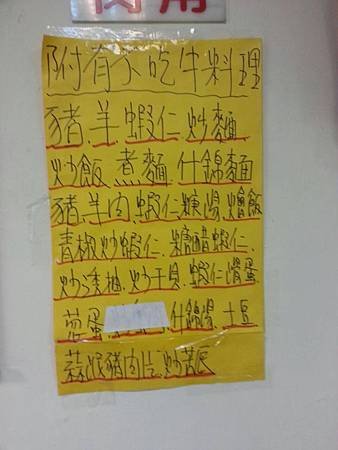 附有不吃牛料理
豬.羊.蝦仁.炒麵
炒飯.煮麵.什錦麵
豬.羊肉.蝦仁.羹湯.燴飯
青椒炒蝦仁.糖醋蝦仁.
炒透抽.炒干貝.蝦仁滑蛋
蔥蛋 什錦湯.土豆
蒜泥豬肉片.炒